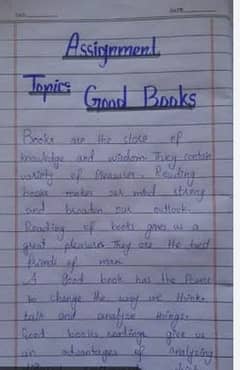 Date
Assignment
Topic:
Good Books
Books are the store of
knowledge and wisdom. They contain
variety of pleasures. Reading
books makes our mind strong
and broaden our outlook.
Reading of books gives us a
great pleasure They are the best
friends of man.
A good book has the Power
to change the way we think,
talk and analyse things.
Good books reading give us
an advantages of analyzing